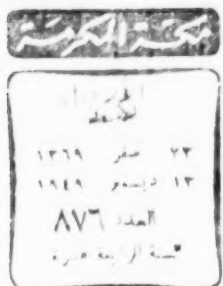 مكة المكرمة
٢٣ صفر ١٣٦٩
١٣ ديسمبر ١٩٤٩
العدد ٨٧٦
السنة الرابعة عشرة